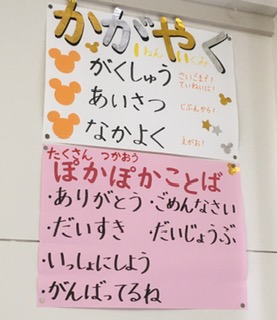 かがやく
1ねん1くみ
がくしゅう さいごまで!ていねいに!
あいさつ じぶんから!
なかよく えがお!
たくさん つかおう
ぽかぽかことば
・ありがとう・ごめんなさい
・だいすき ・だいじょうぶ
・いっしょにしよう
・がんばってるね